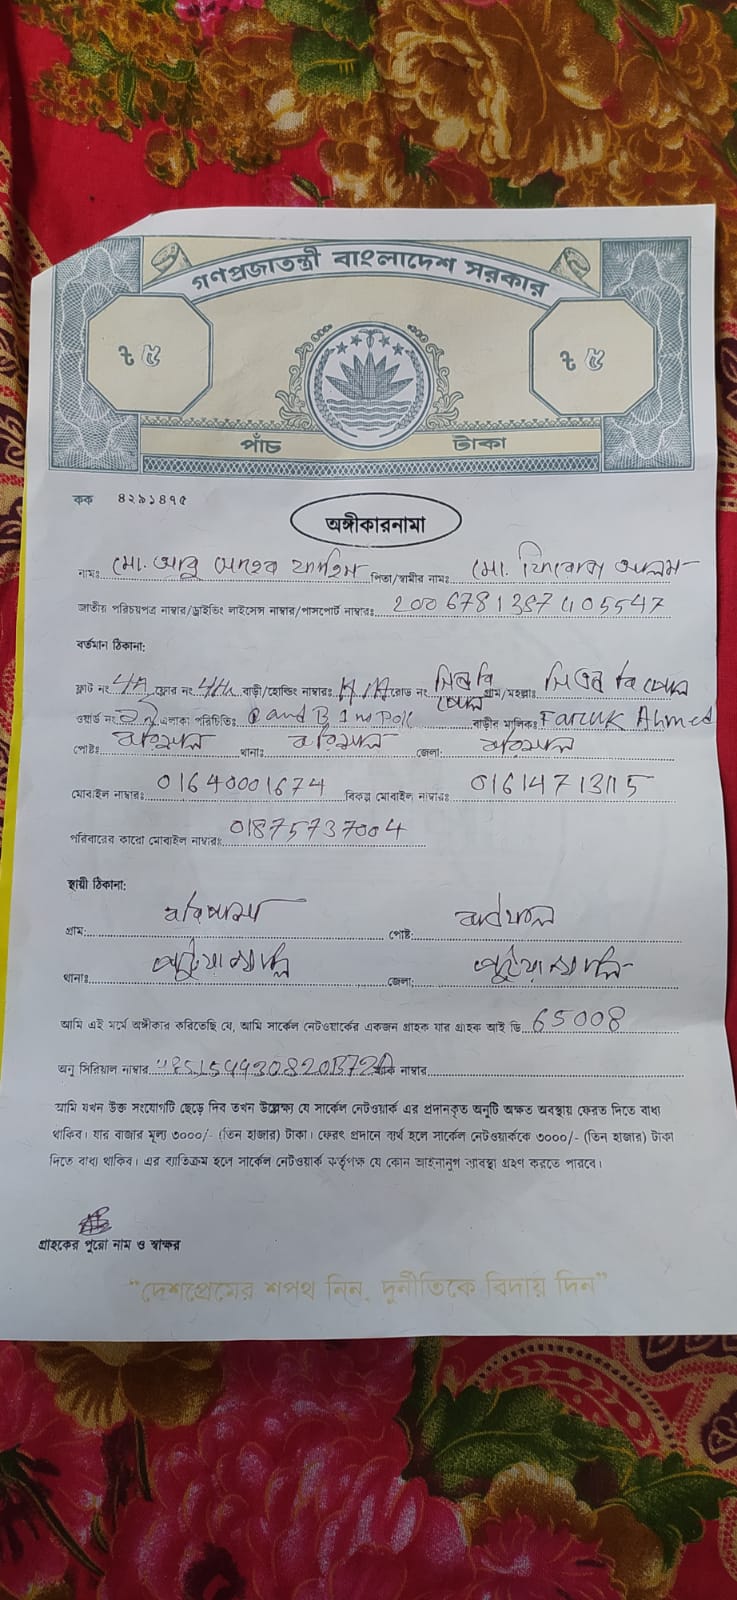 গণপ্রজাতন্ত্রী বাংলাদেশ সরকার
৳ ৫ ৳ ৫
পাঁচ টাকা
কক ৪২৯১৪৭৫
অঙ্গীকারনামা
নামঃ মো. আবু পিতা/স্বামীর নামঃ মো. ফিরোজ আলম
জাতীয় পরিচয়পত্র নাম্বার/ড্রাইভিং লাইসেন্স নাম্বার/পাসপোর্ট নাম্বারঃ
বর্তমান ঠিকানা:
ফ্লাট নং 4A ফ্লোর নং 4th বাড়ী/হোল্ডিং নাম্বারঃ N/A রোড নং গ্রাম/মহল্লাঃ
ওয়ার্ড নং এলাকা পরিচিতিঃ and B 1 no Poll বাড়ীর মালিকঃ Faruk Ahmed
পোষ্টঃ বরিশাল থানাঃ বরিশাল জেলাঃ বরিশাল
মোবাইল নাম্বারঃ 01640001674 বিকল্প মোবাইল নাম্বারঃ
পরিবারের কারো মোবাইল নাম্বারঃ 01875737004
স্থায়ী ঠিকানা:
গ্রাম: পোষ্ট:
থানাঃ পটুয়াখালি জেলা: পটুয়াখালি
আমি এই মর্মে অঙ্গীকার করিতেছি যে, আমি সার্কেল নেটওয়ার্কের একজন গ্রাহক যার গ্রাহক আই ডি 65008
অনু সিরিয়াল নাম্বার নাম্বার
আমি যখন উক্ত সংযোগটি ছেড়ে দিব তখন উল্লেখ্য যে সার্কেল নেটওয়ার্ক এর প্রদানকৃত অনুটি অক্ষত অবস্থায় ফেরত দিতে বাধ্য
থাকিব। যার বাজার মূল্য ৩০০০/- (তিন হাজার) টাকা। ফেরৎ প্রদানে ব্যর্থ হলে সার্কেল নেটওয়ার্ককে ৩০০০/- (তিন হাজার) টাকা
দিতে বাধ্য থাকিব। এর ব্যতিক্রম হলে সার্কেল নেটওয়ার্ক কর্তৃপক্ষ যে কোন আইনানুগ ব্যাবস্থা গ্রহণ করতে পারবে।
গ্রাহকের পুরো নাম ও স্বাক্ষর
"দেশপ্রেমের শপথ নিন, দুর্নীতিকে বিদায় দিন"